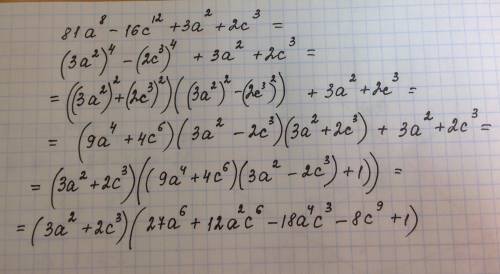 81a⁸ - 16c¹² + 3a² + 2c³ =
(3a²)⁴ - (2c³)⁴ + 3a² + 2c³ =
= ((3a²)² + (2c³)²)((3a²)² - (2c³)²) + 3a² + 2c³ =
= (9a⁴ + 4c⁶)(3a² - 2c³)(3a² + 2c³) + 3a² + 2c³ =
= (3a² + 2c³)((9a⁴ + 4c⁶)(3a² - 2c³) + 1)) =
= (3a² + 2c³)(27a⁶ + 12a²c⁶ - 18a⁴c³ - 8c⁹ + 1)